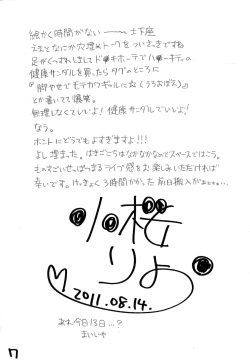 絵かく時間がない――― 土下座
えっとなにか穴埋めトークをついさっきでする
足がくっされしましてド●キホーテでハ●ーキティの
健康サンダルを買ったらタグのところに
『脚やせでモテカワギャルに☆(うろおぼえ)
とか書いてて爆笑。
無理しなくていいよ!健康サンダルでいいよ!
なう。
ホントにどうでもよすぎますよ!!!
よし埋まった。はきごこちはなかなかなのでスペースではこう。
ものすごいせっぱつまるライブ感をお楽しみいただければ
幸いです。けっきょく3時間かかった 前日搬入が
小桜
りょう
2011.08.14.
あれ今日13日...?
まいいや
17